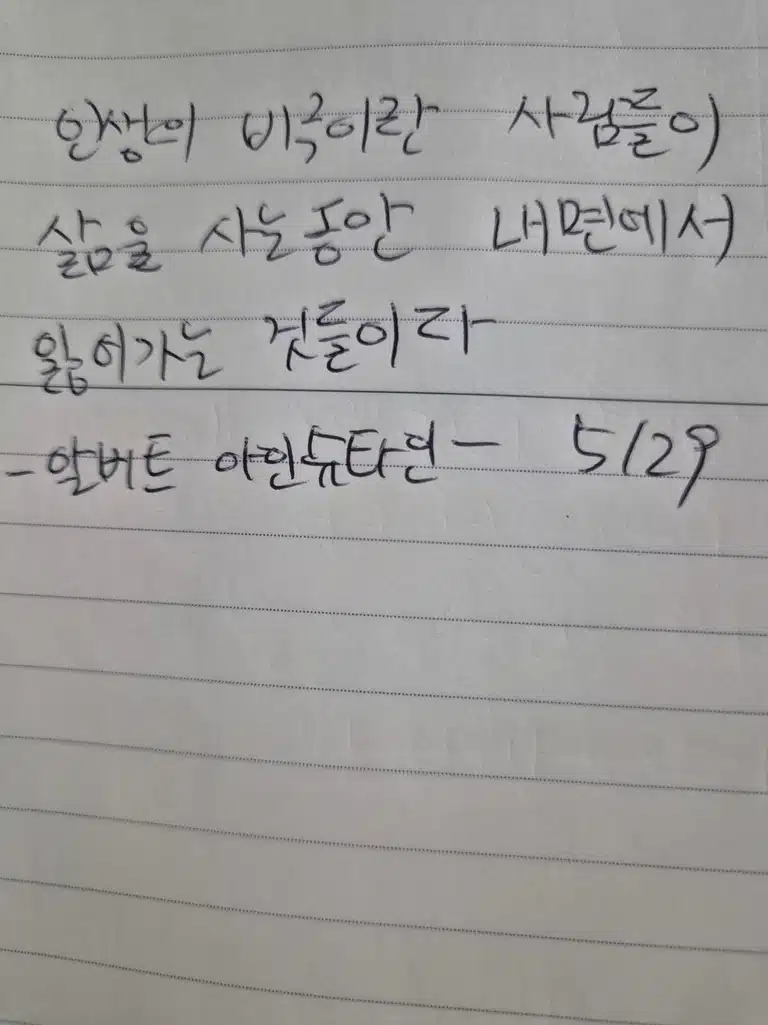 인생의 비극이란 사람들이
삶을 사는동안 내면에서
잃어가는 것들이라
- 알버트 아인슈타인 - 5/29